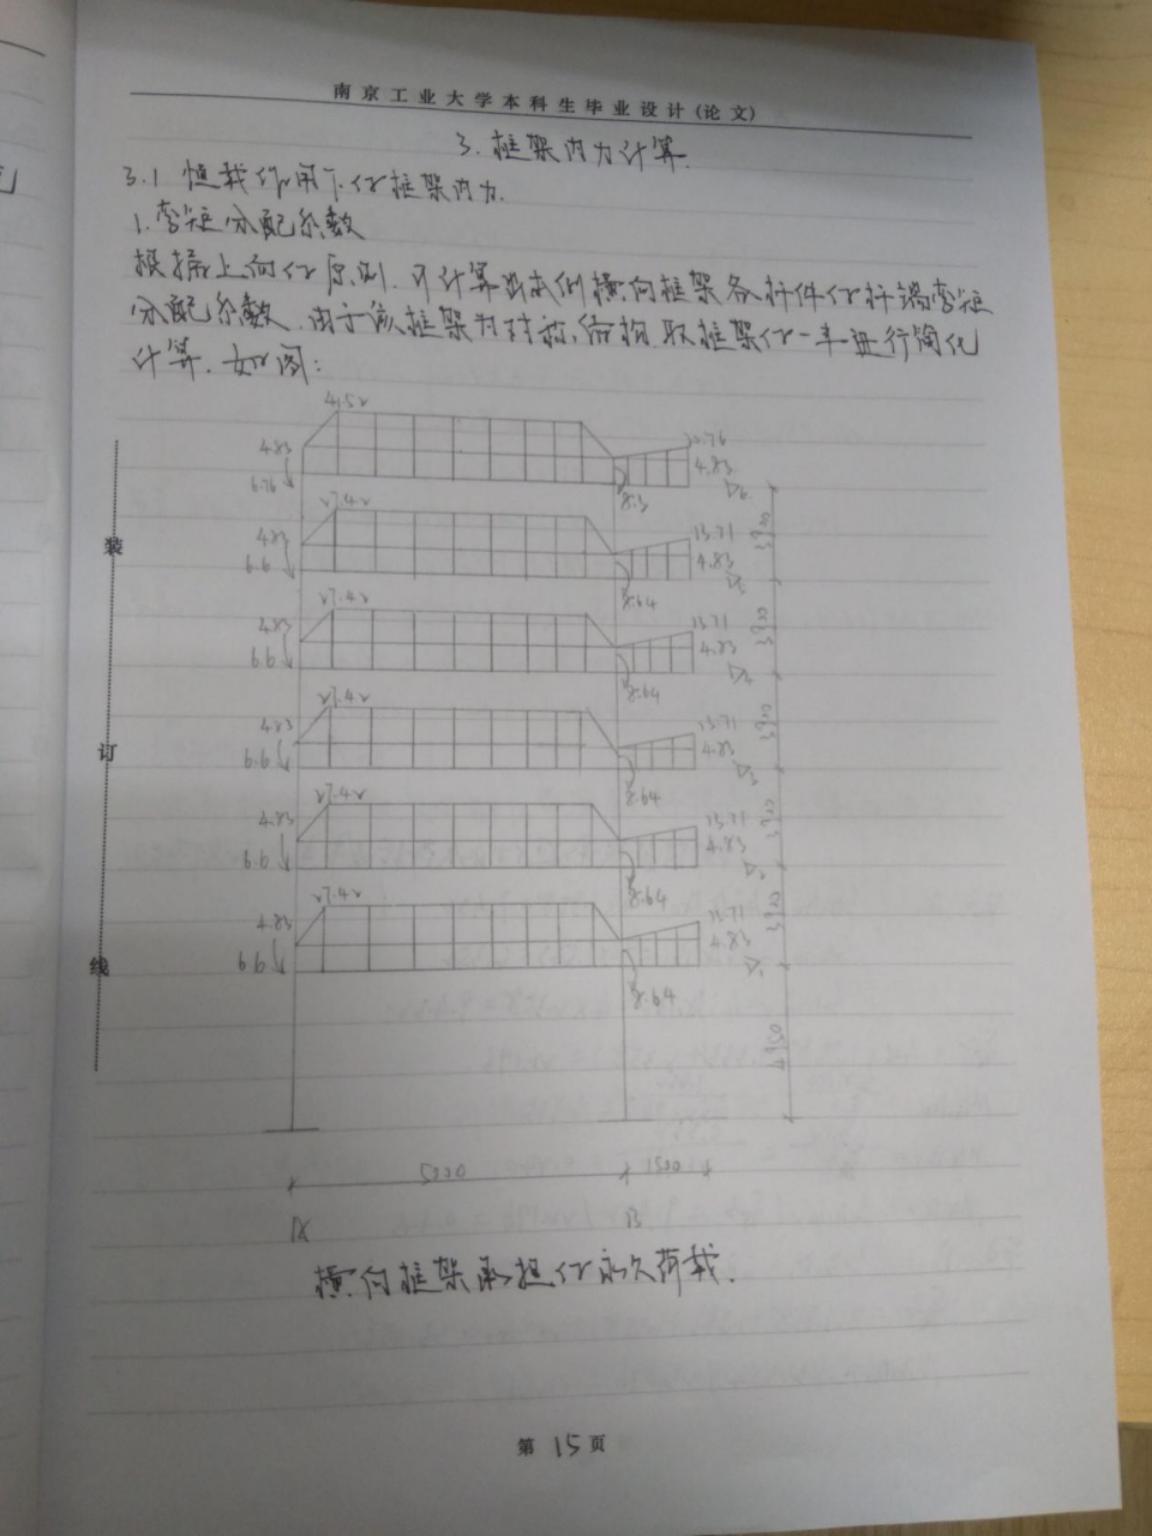 南京工业大学本科生毕业设计(论文)
3. 框架内力计算.
3.1 恒载作用下的框架内力.
1. 弯矩分配系数
根据上面的原则.可计算出本例横向框架各杆件的杆端弯矩
分配系数.由于该框架为对称,结构.取框架的一半进行简化
计算.如图:
41.52
4.83
6.76
10.76
4.83
8.3
27.42
4.83
6.6
13.71
4.83
8.64
3900
27.42
4.83
6.6
13.71
4.83
8.64
3900
27.42
4.83
6.6
13.71
4.83
8.64
3900
27.42
4.83
6.6
13.71
4.83
8.64
3900
27.42
4.83
6.6
13.71
4.83
8.64
3900
4950
5000
1500
A
B
横向框架承担的永久荷载.
装
订
线
第 15 页